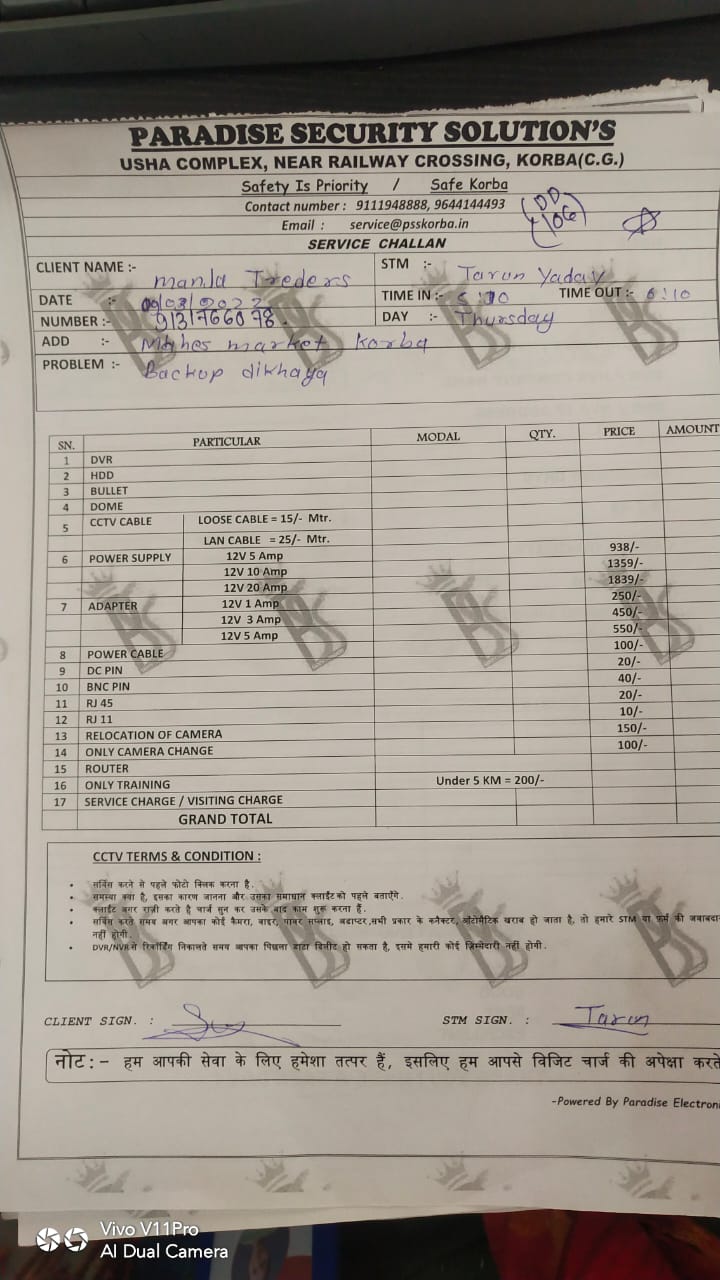 PARADISE SECURITY SOLUTION'S
USHA COMPLEX, NEAR RAILWAY CROSSING, KORBA(C.G.)
Safety Is Priority / Safe Korba
Contact number : 9111948888, 9644144493
Email : service@psskorba.in
SERVICE CHALLAN
CLIENT NAME :- Manla Treders
STM :- Tarun Yadav
DATE :- /03/2022
TIME IN :- 5:10 TIME OUT :- 6:10
NUMBER :- 9131766078.
DAY :- Thursday
ADD :- market Korba
PROBLEM :- Backup dikhaya
SN. PARTICULAR MODAL QTY. PRICE AMOUNT
1 DVR
2 HDD
3 BULLET
4 DOME
5 CCTV CABLE LOOSE CABLE = 15/- Mtr.
LAN CABLE = 25/- Mtr.
6 POWER SUPPLY 12V 5 Amp 938/-
12V 10 Amp 1359/-
12V 20 Amp 1839/-
7 ADAPTER 12V 1 Amp 250/-
12V 3 Amp 450/-
12V 5 Amp 550/-
8 POWER CABLE 100/-
9 DC PIN 20/-
10 BNC PIN 40/-
11 RJ 45 20/-
12 RJ 11 10/-
13 RELOCATION OF CAMERA 150/-
14 ONLY CAMERA CHANGE 100/-
15 ROUTER
16 ONLY TRAINING Under 5 KM = 200/-
17 SERVICE CHARGE / VISITING CHARGE
GRAND TOTAL
CCTV TERMS & CONDITION :
• सर्विस करने से पहले फोटो क्लिक करना है.
• समस्या क्या है, इसका कारण जानना और उसका समाधान क्लाईंट को पहले बताएँगे.
• क्लाईंट अगर राज़ी करते है चार्ज सुन कर उसके बाद काम शुरू करना हैं.
• सर्विस करते समय अगर आपका कोई कैमरा, वाइर, पावर सप्लाइ, अडाप्टर,सभी प्रकार के कनैक्टर, ऑटोमैटिक खराब हो जाता है, तो हमारे STM या फर्म की जवाबदा
नहीं होगी.
• DVR/NVR से रिकॉर्डिंग निकालते समय आपका पिछला डाटा डिलीट हो सकता है, इसमे हमारी कोई ज़िम्मेदारी नहीं होगी.
CLIENT SIGN. :
STM SIGN. : Tarun
नोट:- हम आपकी सेवा के लिए हमेशा तत्पर हैं, इसलिए हम आपसे विजिट चार्ज की अपेक्षा करते
-Powered By Paradise Electroni
Vivo V11Pro
AI Dual Camera